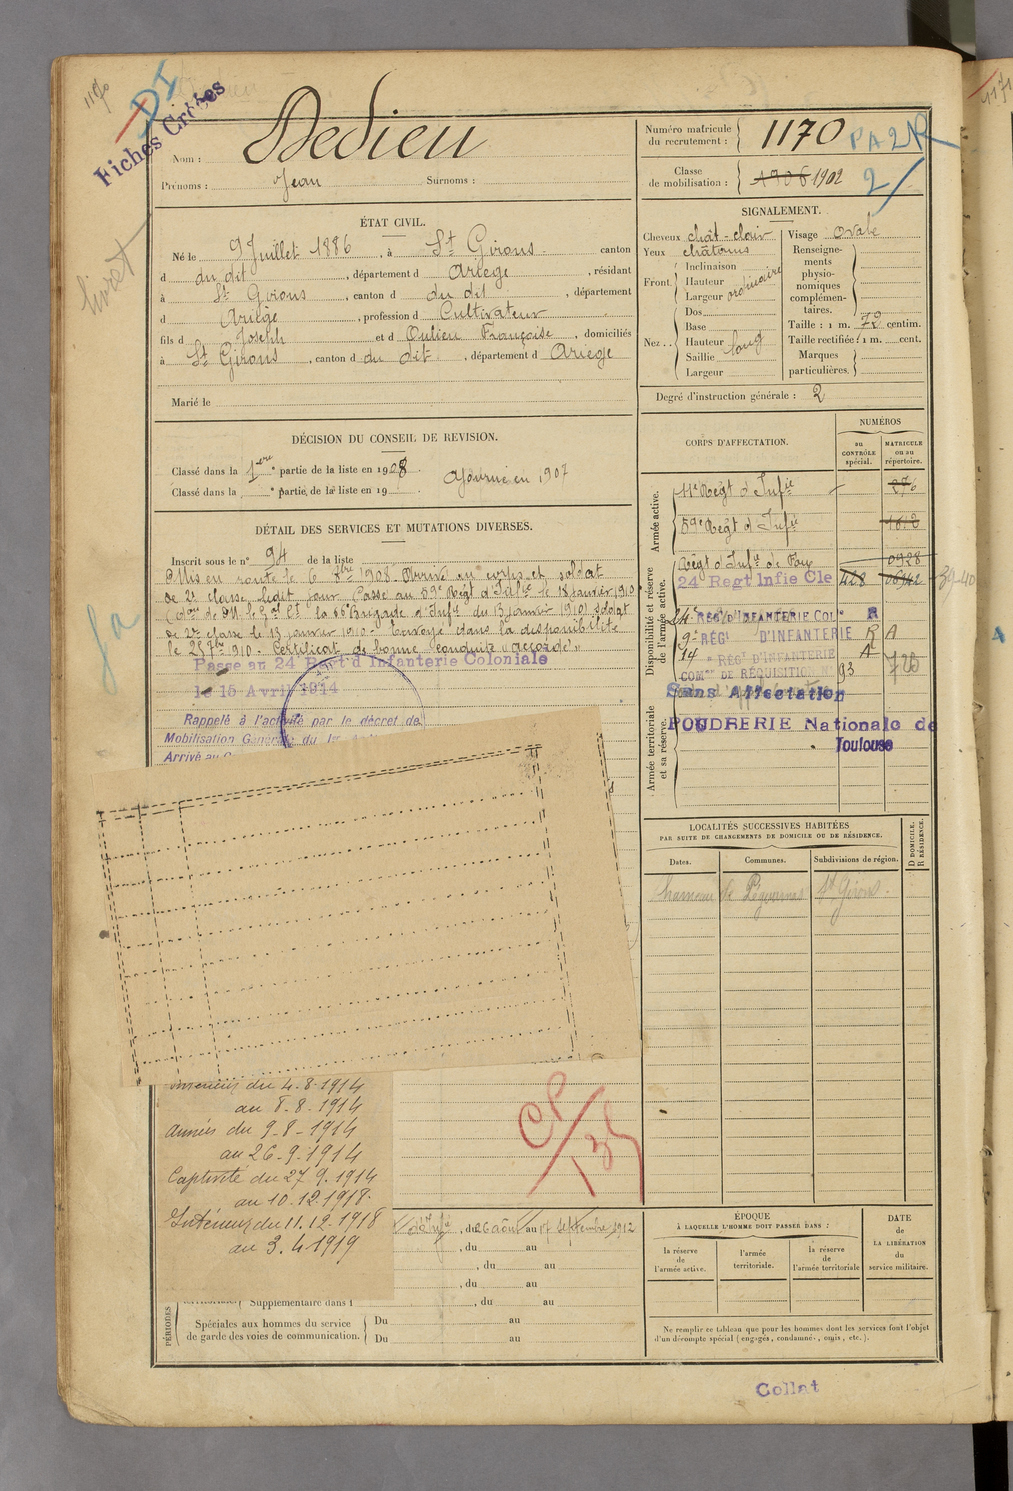 1170
DI
Fiches Créées
Nom : Dedieu
Prénoms : Jean Surnoms :
Numéro matricule du recrutement : 1170 PA2R
Classe de mobilisation : 1906 1902 2/
livret
ÉTAT CIVIL.
Né le 9 Juillet 1886, à St Girons canton
d du dit, département d Ariège, résidant
à St Girons, canton d du dit, département
d Ariège, profession d Cultivateur
fils d Joseph et d Oulieu Françoise, domiciliés
à St Girons, canton d du dit, département d Ariège
Marié le
SIGNALEMENT.
Cheveux chât-clair
Yeux châtains
Front. Inclinaison
Hauteur
Largeur ordinaire
Nez .. Dos
Base
Hauteur
Saillie long
Largeur
Visage ovale
Renseigne-
ments
physio-
nomiques
complémen-
taires.
Taille : 1 m. 72 centim.
Taille rectifiée : 1 m. cent.
Marques
particulières.
Degré d'instruction générale : 2
DÉCISION DU CONSEIL DE REVISION.
Classé dans la 1ere partie de la liste en 1908. Ajourné en 1907
Classé dans la e partie de la liste en 19
DÉTAIL DES SERVICES ET MUTATIONS DIVERSES.
Inscrit sous le n° 94 de la liste
Mis en route le 6 8bre 1908. Arrivé au corps et soldat
de 2e classe ledit jour. Passé au 59e Régt d'Infie le 13 janvier 1910
de 2e classe le 13 janvier 1910. Envoyé dans la disponibilité
le 25 7bre 1910. Certificat de bonne conduite "accordé"
Passé au 24 Regt d'Infanterie Coloniale
le 15 Avril 1914
Rappelé à l'activité par le décret de
Mobilisation Générale du 1er
Arrivé au C
CORPS D'AFFECTATION.
NUMÉROS
au
CONTRÔLE
spécial.
MATRICULE
ou au
répertoire.
Armée active.
11e Régt d'Infie 276
59e Régt d'Infie 1612
Disponibilité et réserve
de l'armée active.
Régt d'Infie de Foix 0928
24 Regt Infie Cle 428 39-40
24e RÉGt D'INFANTERIE COLe R
9e RÉGt D'INFANTERIE R A
14 e RÉGt D'INFANTERIE A
COMon DE RÉQUISITION N° 93 725
Sans Affectation
Armée territoriale
et sa réserve.
POUDRERIE Nationale de
Toulouse
LOCALITÉS SUCCESSIVES HABITÉES
PAR SUITE DE CHANGEMENTS DE DOMICILE OU DE RÉSIDENCE.
D DOMICILE.
R RÉSIDENCE.
Dates. Communes. Subdivisions de région.
hameau de St Girons.
du 4.8.1914
au 8.8.1914
Armées du 9-8-1914
au 26.9.1914
Captivité du 27.9.1914
au 10.12.1918.
Intérieur du 11.12.1918
au 3.4.1919
d'Infie, du 26 août au 17 Septembre 1912
, du au
, du au
, du au
Supplémentaire dans l , du au
PÉRIODES
Spéciales aux hommes du service
de garde des voies de communication.
Du au
Du au
ÉPOQUE
À LAQUELLE L'HOMME DOIT PASSER DANS :
la réserve
de
l'armée active.
l'armée
territoriale.
la réserve
de
l'armée territoriale
DATE
de
LA LIBÉRATION
du
service militaire.
Ne remplir ce tableau que pour les hommes dont les services font l'objet
d'un décompte spécial (engagés, condamnés, omis, etc.).
Collat
1171